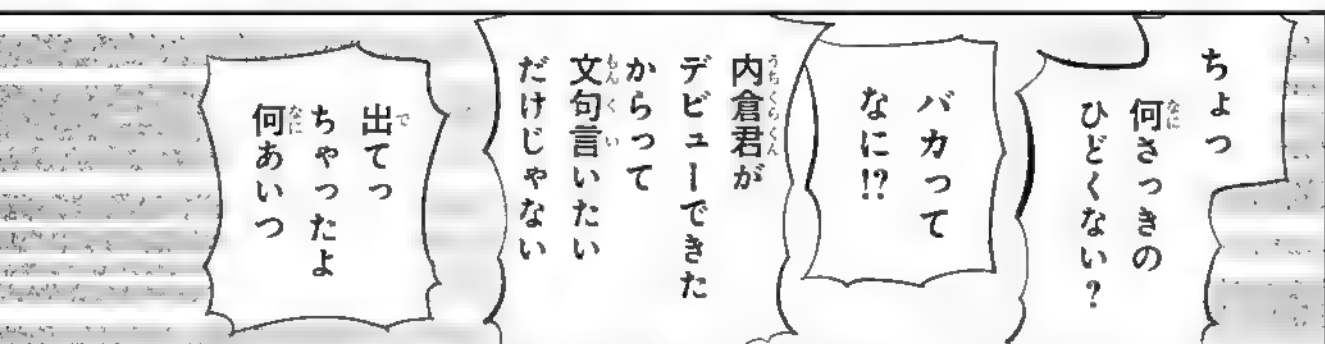 ちょっ
何さっきの
ひどくない?
バカって
なに!?
内倉君が
デビューできた
からって
文句言いたい
だけじゃない
出てっ
ちゃったよ
何あいつ